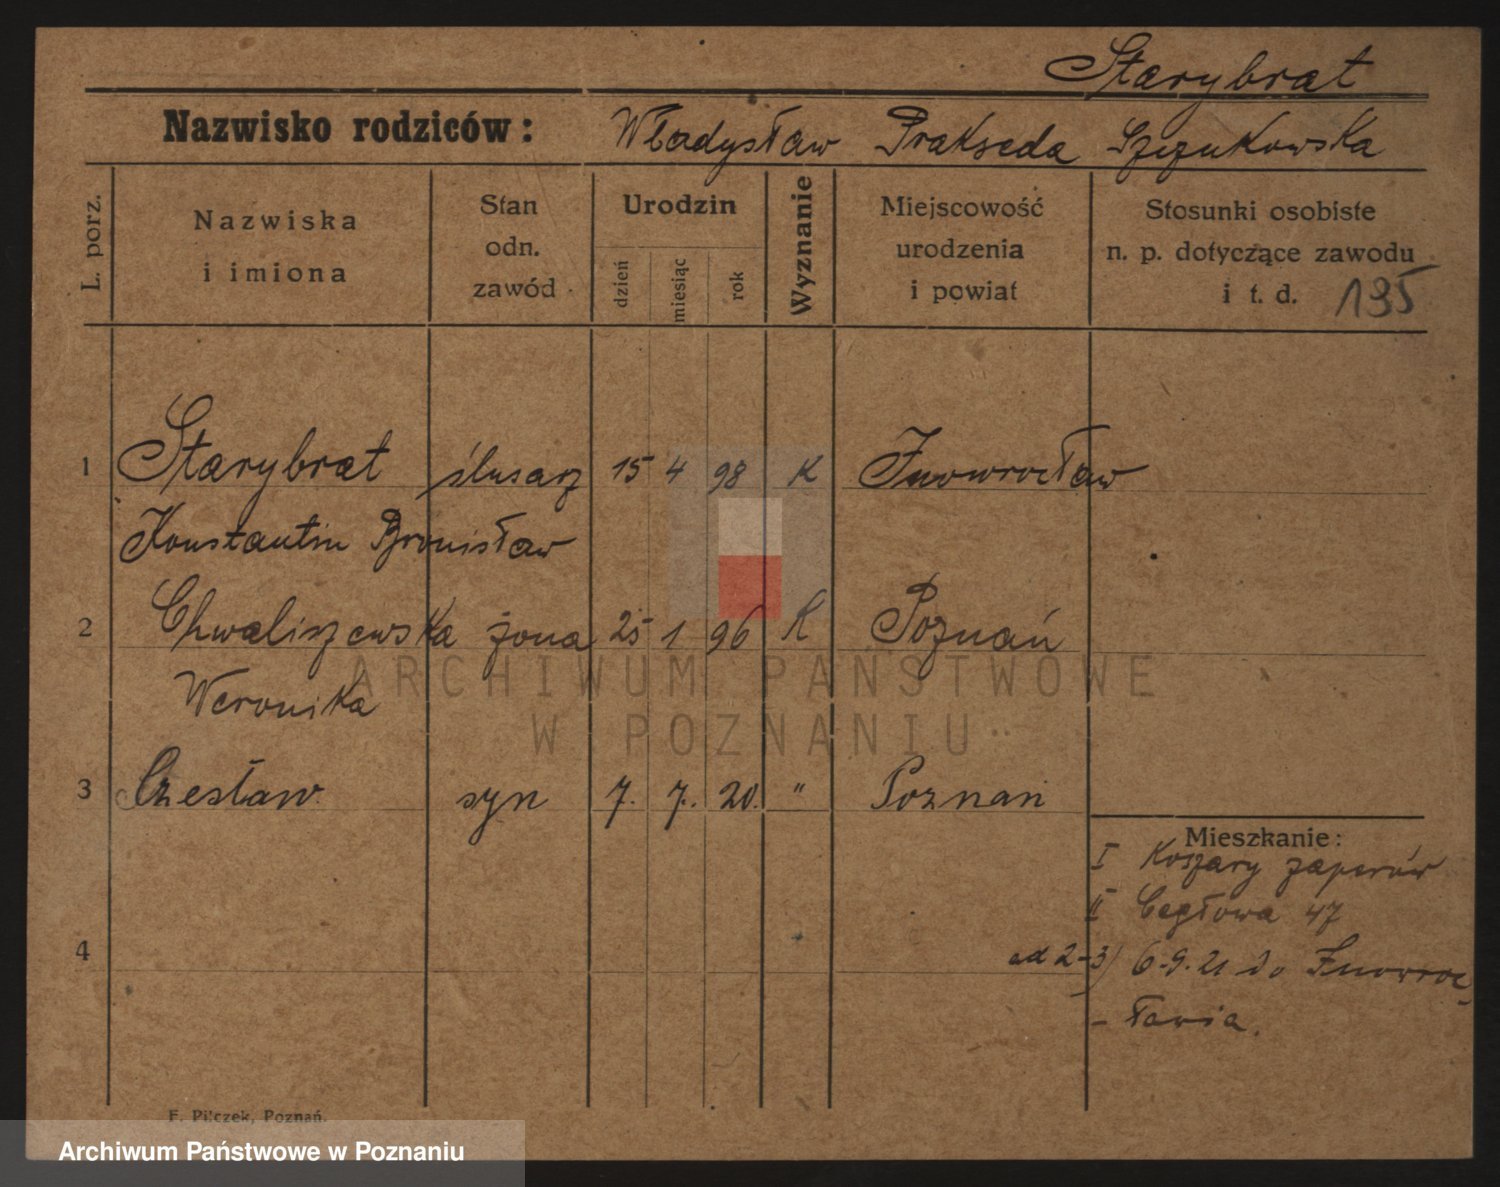 Starybrat
Nazwisko rodziców: Władysław Prakseda Szczukowska
L. porz.
Nazwiska i imiona
Stan odn. zawód
Urodzin
dzień
miesiąc
rok
Wyznanie
Miejscowość urodzenia i powiat
Stosunki osobiste n. p. dotyczące zawodu i t. d. 195
1 Starybrat ślusarz 15 4 98 K Inowrocław
Konstantin Bronisław
2 Chwaliszewska żona 25 1 96 K Poznań
Weronika
ARCHIWUM PAŃSTWOWE
W POZNANIU
3 Czesław syn 7. 7. 20. " Poznań
Mieszkanie:
I Koszary zaperów
II Cegłowa 47
4
ad 2-3) 6-9.21 do Inowroc-
- ławia.
F. Pilczek, Poznań.
Archiwum Państwowe w Poznaniu